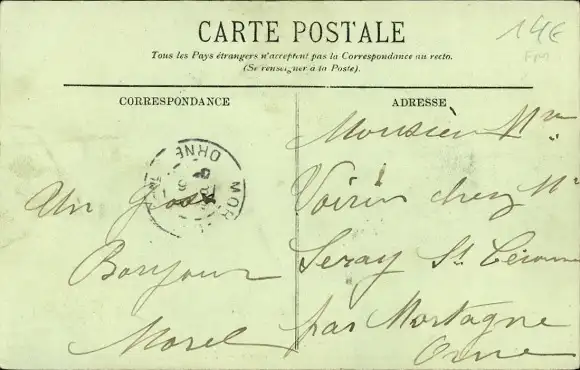 CARTE POSTALE
14€
Fm
Tous les Pays étrangers n'acceptent pas la Correspondance au recto.
(Se renseigner à la Poste).
CORRESPONDANCE
ADRESSE
ORNE
Un Gros
Bonjour
Morel
Monsieur
Voirin chez Mr
Seray St
par Mortagne
Orne